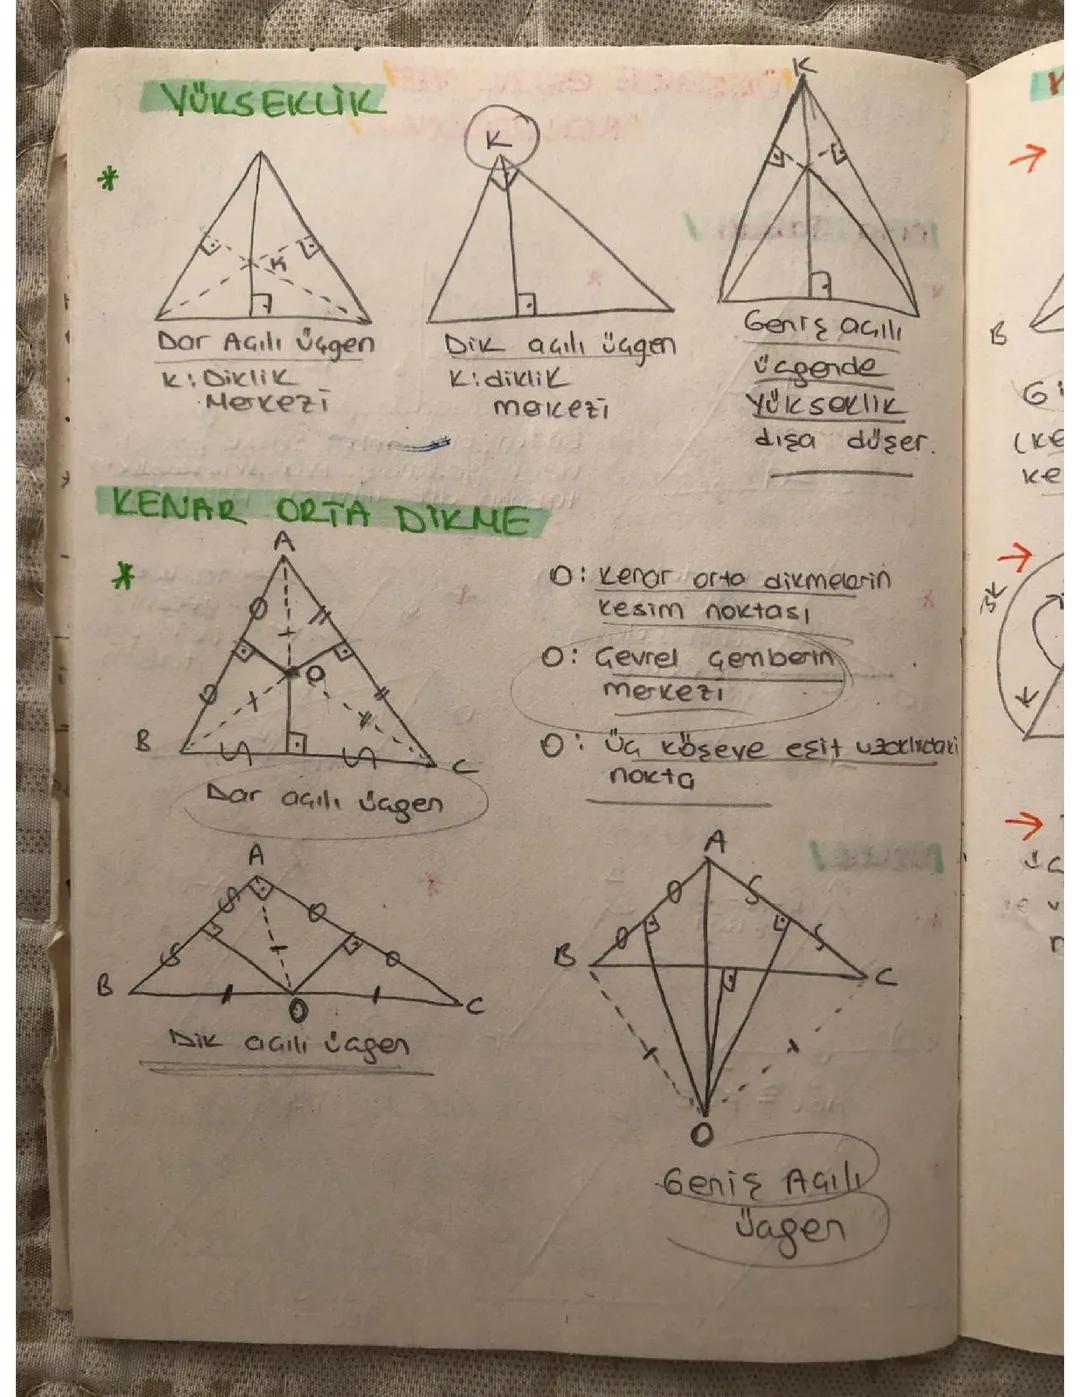 YÜKSEKLİK
K
K
K
Dar Açılı üçgen
K: Diklik
Merkezi
Dik açılı üçgen
K: diklik
merkezi
Geniş açılı
üçgende
Yükseklik
dışa düşer.
KENAR ORTA DİKME
A
O
B
C
Dar açılı üçgen
O: Kenar orta dikmelerin
kesim noktası
O: Çevrel çemberin
merkezi
O: Üç köşeye eşit uzaklıktaki
nokta
A
B
C
O
Dik açılı üçgen
A
B
C
O
Geniş Açılı
üçgen
B
3K
K